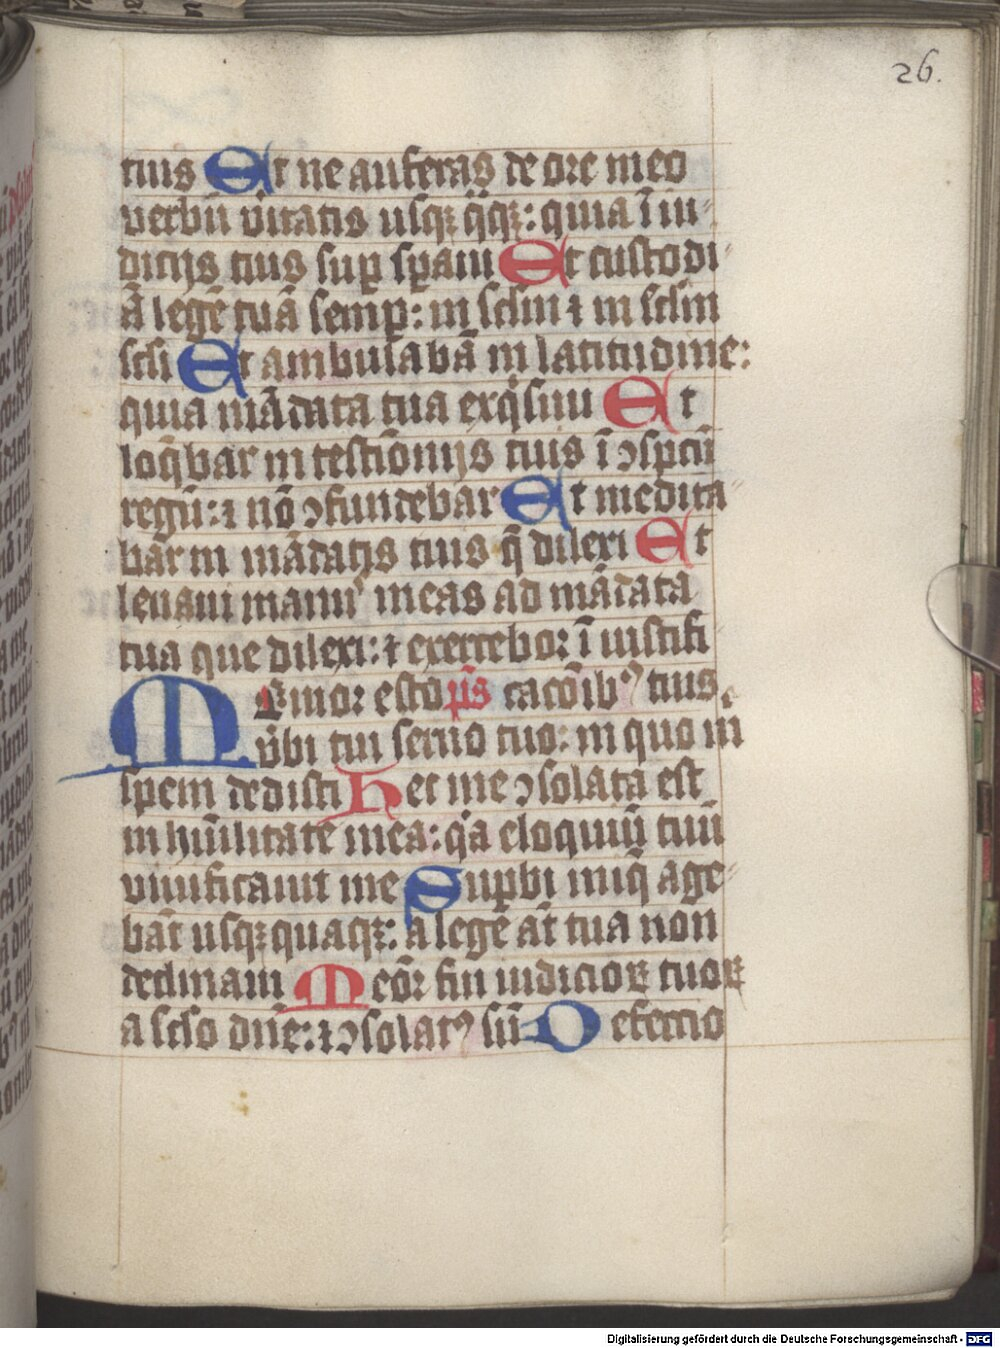 26.
tuis Et ne auferas de ore meo
verbū v̄itatis usqꝫ q̄qꝫ: quia ī iu
dicijs tuis suꝑ sꝑaui Et custodi
ā legē tuā semꝑ: in sclm̄ ⁊ in sclm̄
scl̄i Et ambulabā in latitudine:
quia mādata tua exq̇siui Et
loq̄bar in testīonijs tuis ī ↄspc̄ū
regū: ⁊ nō ↄfundebar Et medita
bar in mādatis tuis q̄ dilexi Et
leuaui manꝰ meas ad mādata
tua que dilexi: ⁊ exercebor ī iustifi
Memor esto p̄s cacōibꝰ tuis.
v̄bi tui seruo tuo: in quo m
spem dedisti Hec me ↄsolata est
in hūilitate mea: qͥa eloquiū tuū
uiuificauit me Suꝑbi iniq̄ age
bāt usqꝫquaqꝫ: a lege āt tua non
declinaui Meōr fui iudicioꝝ tuoꝝ
a sclo dn̄e: ⁊ ↄsolatꝰ sū Defectio
Digitalisierung gefördert durch die Deutsche Forschungsgemeinschaft - DFG